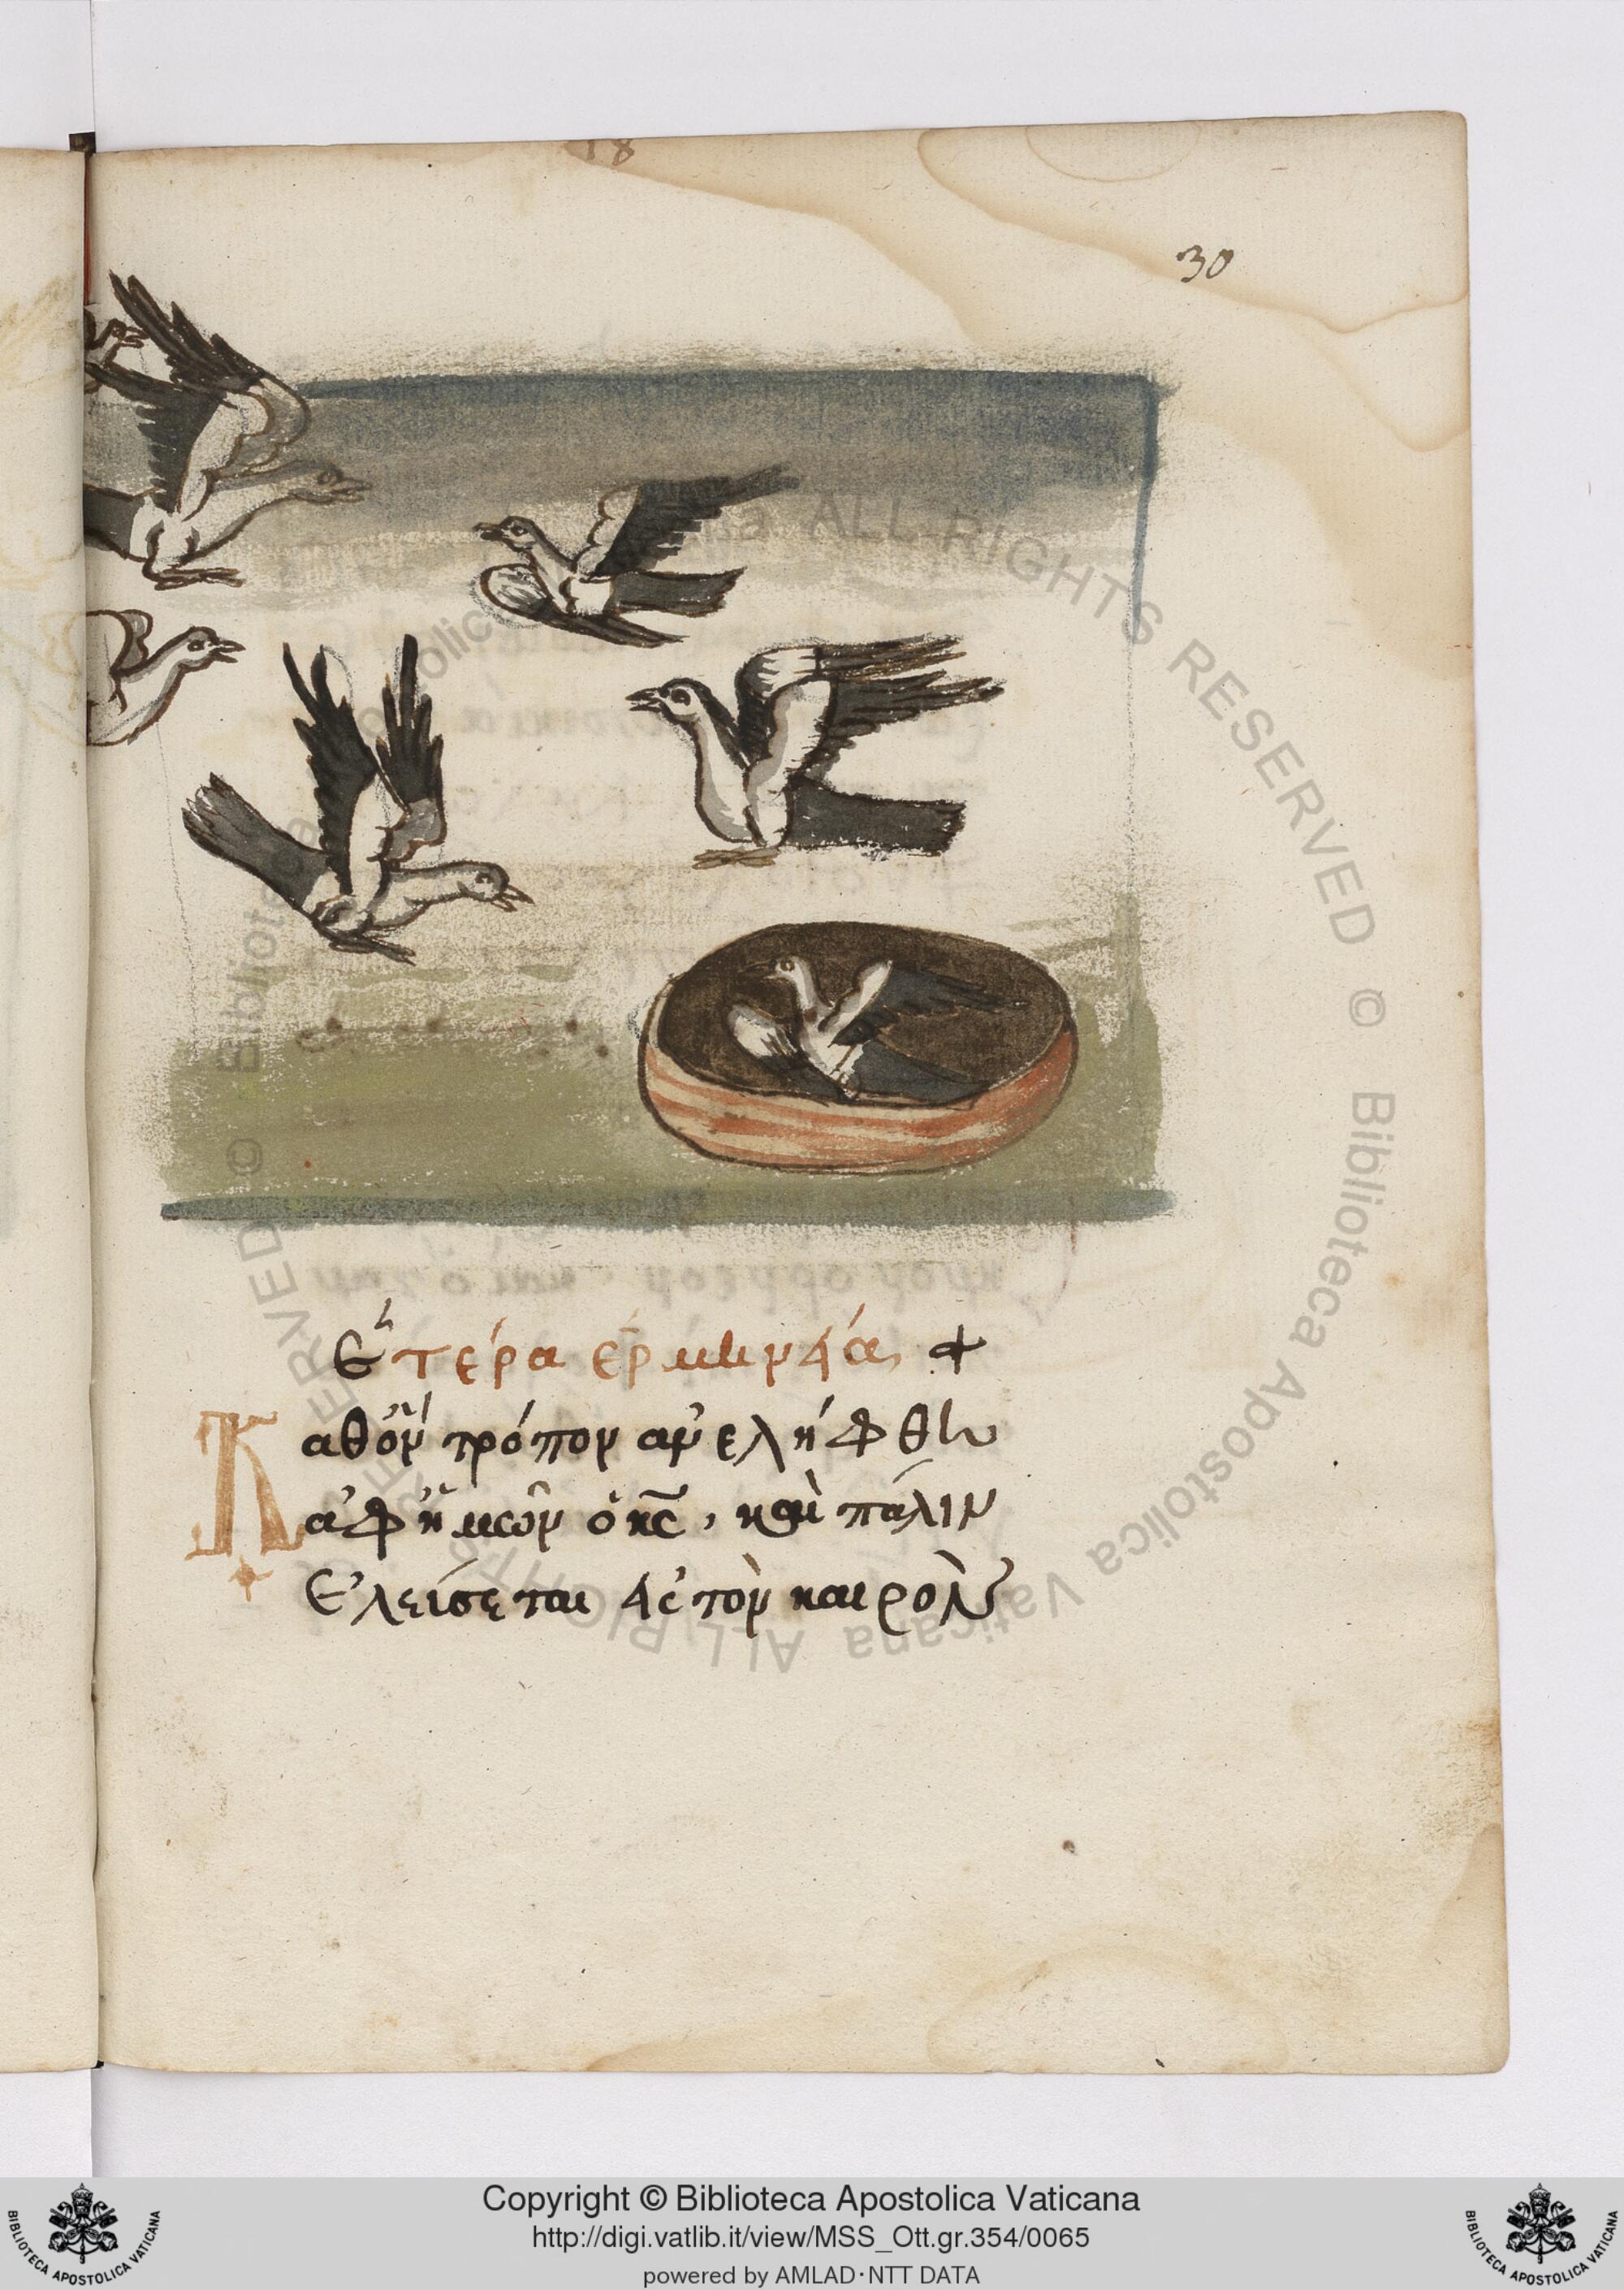 30
Ἑτέρα ἑρμηνεία +
Καθὸν τρόπον ἀνελήφθη
ἀφ ἡμῶν ὁ κς, καὶ πάλιν
Ἐλείσεται εἰς τὸν καιρὸν
Copyright © Biblioteca Apostolica Vaticana
http://digi.vatlib.it/view/MSS_Ott.gr.354/0065
powered by AMLAD·NTT DATA
BIBLIOTECA APOSTOLICA VATICANA
BIBLIOTECA APOSTOLICA VATICANA
Biblioteca Apostolica Vaticana ALL RIGHTS RESERVED ©